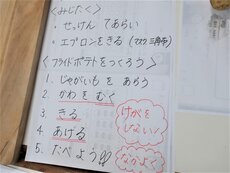 〈みじたく〉
・せっけん てあらい
・エプロンをきる(マスク 三角巾)
〈フライドポテトをつくろう〉
1. じゃがいもを あらう
2. かわを むく
3. きる
4. あげる
5. たべよう!!
けがを
しない!
なかよく